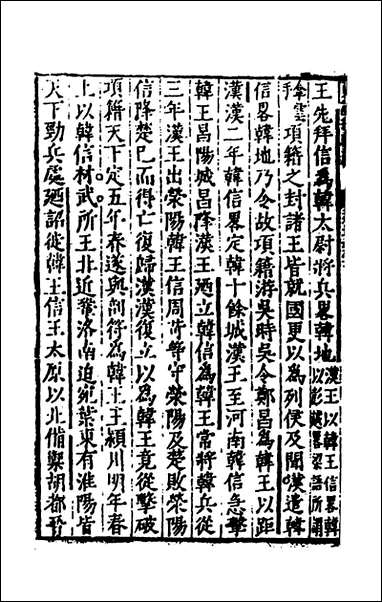 王先拜信爲韓太尉將兵畧韓地
漢王以韓王信畧韓
以彭越畧梁語所謂
項籍之封諸王皆就國更以爲列侯及聞漢遣韓
信畧韓地乃令故項籍游吳時吳令鄭昌爲韓王以距
漢漢二年韓信畧定韓十餘城漢王至河南韓信急擊
韓王昌陽城昌降漢王廼立韓信爲韓王常將韓兵從
三年漢王出滎陽韓王信周苛等守滎陽及楚敗滎陽
信降楚已而得亡復歸漢漢復立以爲韓王竟從擊破
項籍天下定五年春遂與剖符爲韓王王潁川明年春
上以韓信材武所王北近鞏洛南迫宛葉東有淮陽皆
天下勁兵處廼詔徙韓王信王太原以北備禦胡都晉